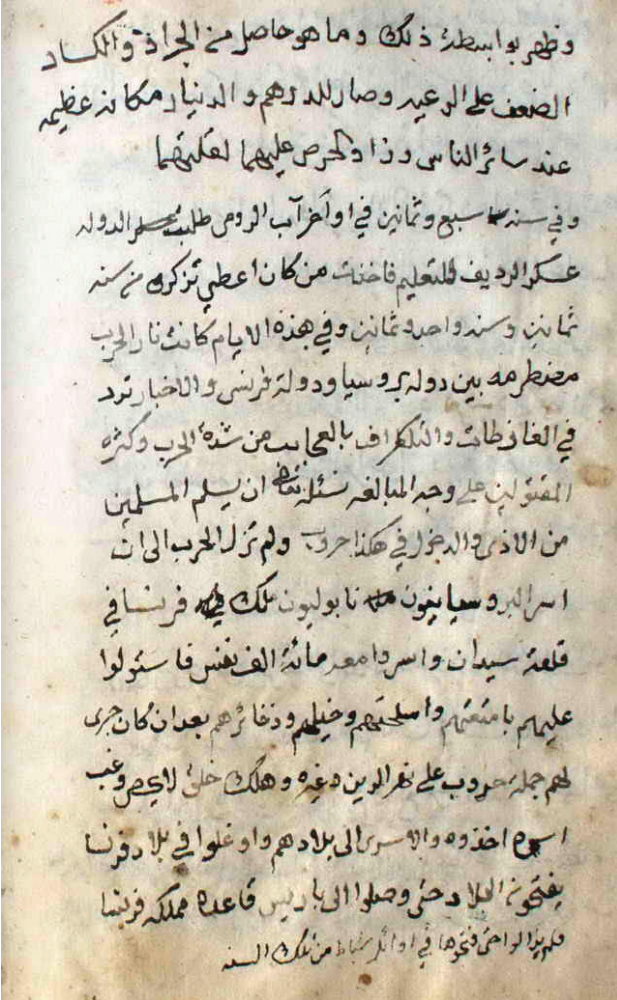 وظهر بواسطة ذلك وما هو حاصل من الجراد والكساد
الضعف على الرعيه وصار للدرهم والدينار مكانه عظيمه
عند سائر الناس وزاد الحرص عليهما لقلتهما
وفي سنه سبع وثمانين في اواخر آب الرومي طلبت الدوله
عسكر الرديف للتعليم فاخذت من كان اعطي تزكره من سنه
ثمانين وسنه واحد وثمانين وفي هذه الايام كانت نار الحرب
مضطرمه بين دولة بروسيا ودولة فرنسى والاخبار ترد
في الغازطات والتلكراف بالعجايب من شدة الحرب وكثره
المقتولين على وجه المبالغه نسئله تعالى ان يسلم المسلمين
من الاذى والدخول في هكذا حروب ولم تزل الحرب الى ان
اسر البروسيانيون نابوليون ملك فرنسا في
قلعة سيدان واسروا معه مائة الف نفس فاستولوا
عليهم بامتعتهم واسلحتهم وخيلهم وذخائرهم بعد ان كان جرى
لهم جملة حروب على نهر الرين وغيره وهلك خلق لا يحصى وغب
اسره اخذوه والاسرى الى بلادهم واوغلوا في بلاد فرنسا
يفتحون البلاد حتى وصلوا الى باريس قاعدة مملكه فرنسا
فلم يزالوا حتى فتحوها في اوائل شباط من تلك السنه